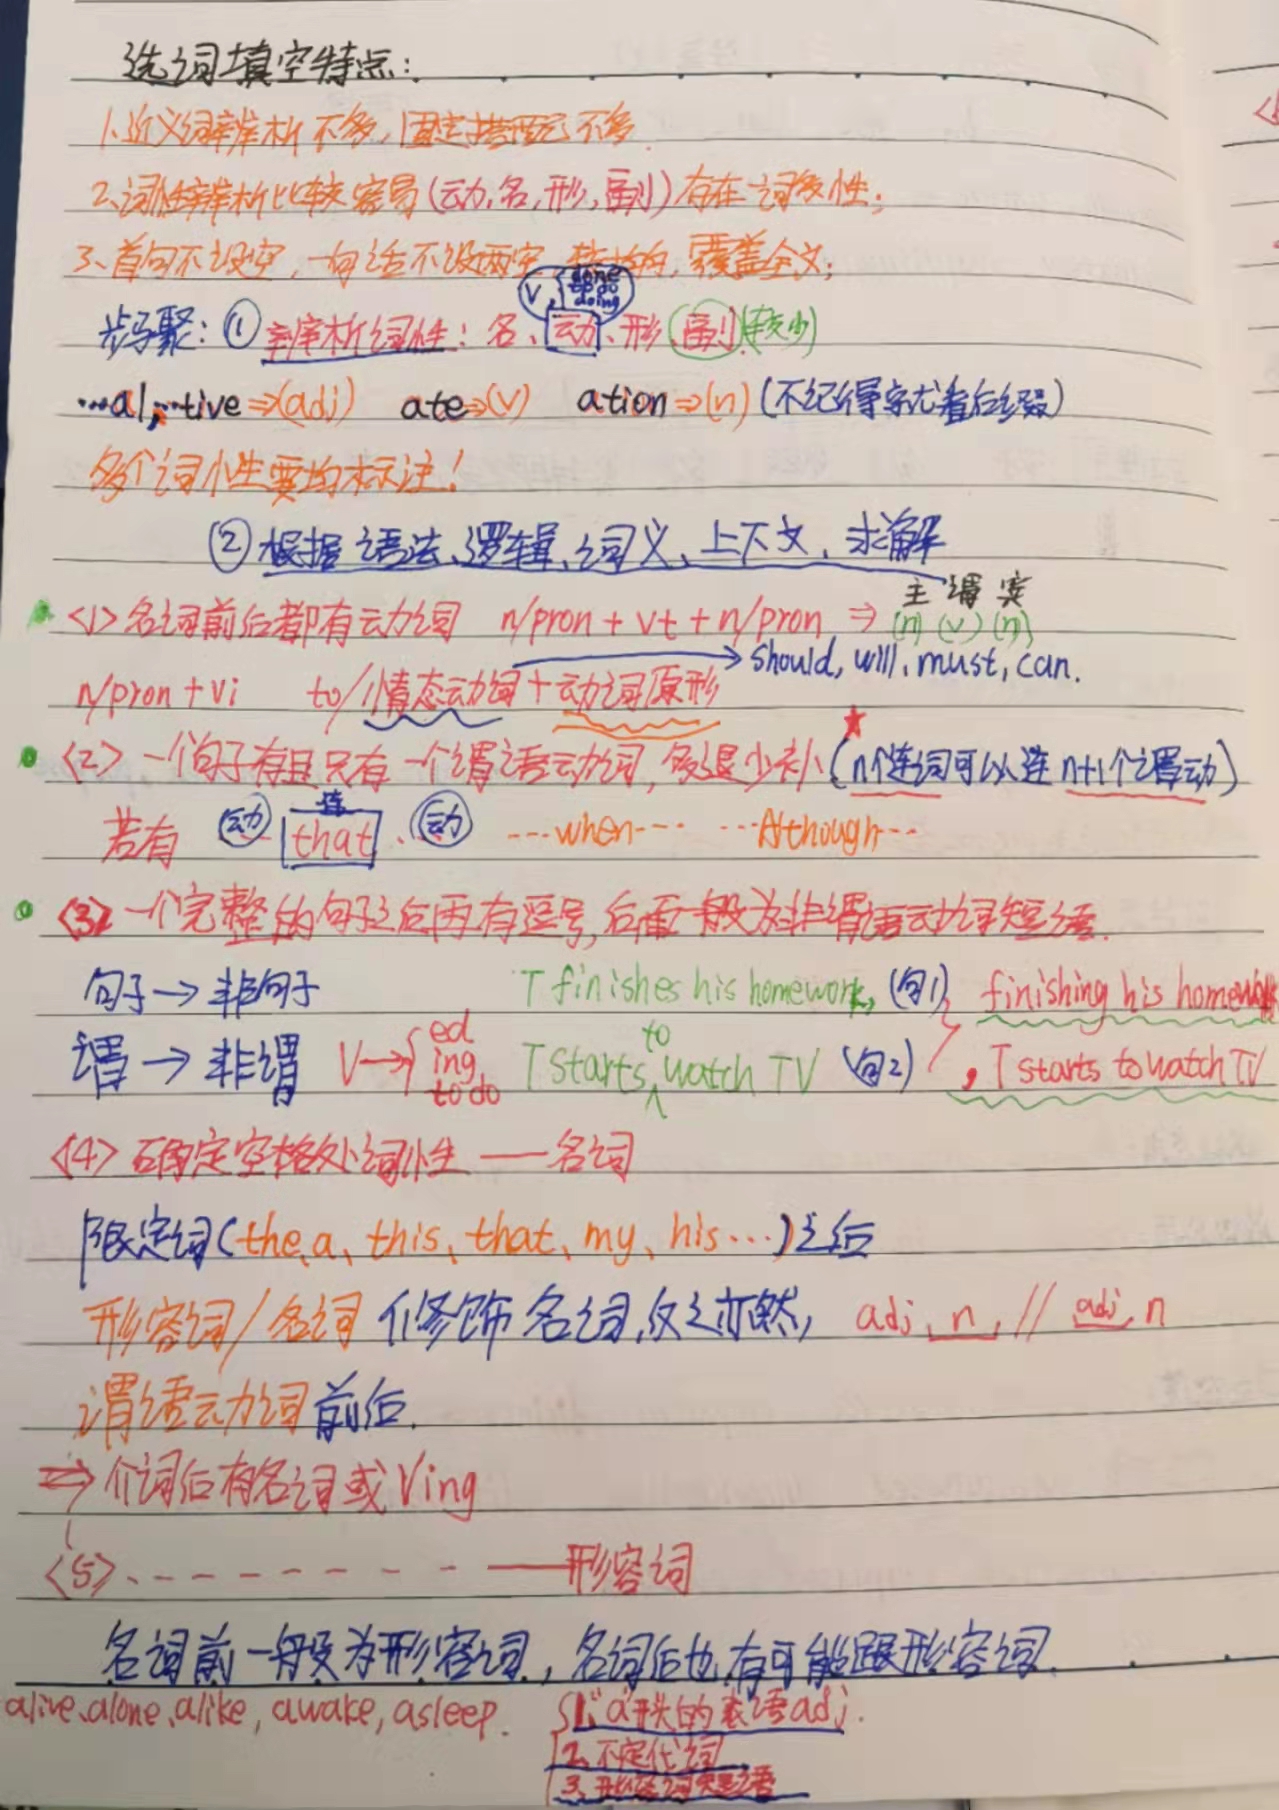 选词填空特点:
1、近义词辨析不多,固定搭配不多.
2、词性辨析比较容易(动,名,形,副)存在一词多性;
3、首句不设空,一句话不设两空,结构的,覆盖全文;
V. { done to do doing
步骤: ① 辨析词性: 名、动、形、副(较少)
...al, ...tive ⇒(adj) ate⇒(v) ation⇒(n) (不记得家尤看后缀)
多个词性要均标注!
② 根据语法、逻辑、词义、上下文,求解
主 谓 宾
<1> 名词前后都有动词 n/pron + vt + n/pron ⇒ (n) (v) (n)
→ should, will, must, can.
n/pron + vi to/情态动词+动词原形
<2> 一个句子有且只有一个谓语动词,多退少补 (n个连词可以连n+1个谓动)
连
若有 动 that 动 ...when... ...Although...
<3> 一个完整的句子之后再有逗号,后面一般为非谓语动词短语.
句子→非句子 T finishes his homework, (句1), finishing his homework
谓→非谓 V→{ ed ing to do T starts to watch TV (句2) , T starts to watch TV
<4> 确定空格处词性 —— 名词
限定词(the、a、this、that、my、his...)之后
形容词/名词 修饰名词,反之亦然, adj. n. // adj. n
谓语动词前后.
⇒ 介词后有名词或Ving
<5>、- - - - - - - - —— 形容词
名词前一般为形容词,名词后也有可能跟形容词.
alive、alone、alike, awake, asleep. { 1."a"开头的表语adj.
2、不定代词
3、形容词短语